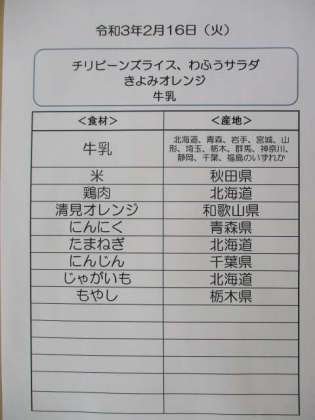 令和3年2月16日（火）
チリビーンズライス、わふうサラダ
きよみオレンジ
牛乳
＜食材＞ ＜産地＞
牛乳 北海道、青森、岩手、宮城、山
形、埼玉、栃木、群馬、神奈川、
静岡、千葉、福島のいずれか
米 秋田県
鶏肉 北海道
清見オレンジ 和歌山県
にんにく 青森県
たまねぎ 北海道
にんじん 千葉県
じゃがいも 北海道
もやし 栃木県